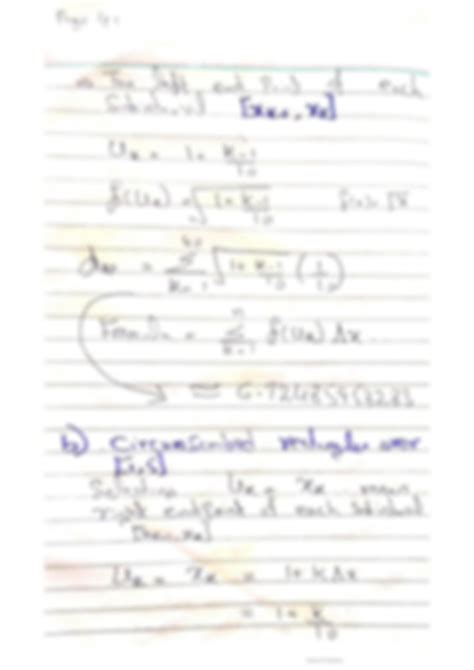 The left end point of each
Subinterval [xₖ₋₁, xₖ]
uₖ = 1 + k-1/10
f(uₖ) = √(1 + k-1/10) f(x) = √x
= Σ k=1 40 √(1 + k-1/10) (1/10)
Formula = Σ k=1 n f(uₖ) Δx
b) Circumscribed rectangles over
[1,5]
Selecting uₖ = xₖ means
right endpoint of each Subinterval
[xₖ₋₁, xₖ]
uₖ = xₖ = 1 + kΔx
= 1 + k/10